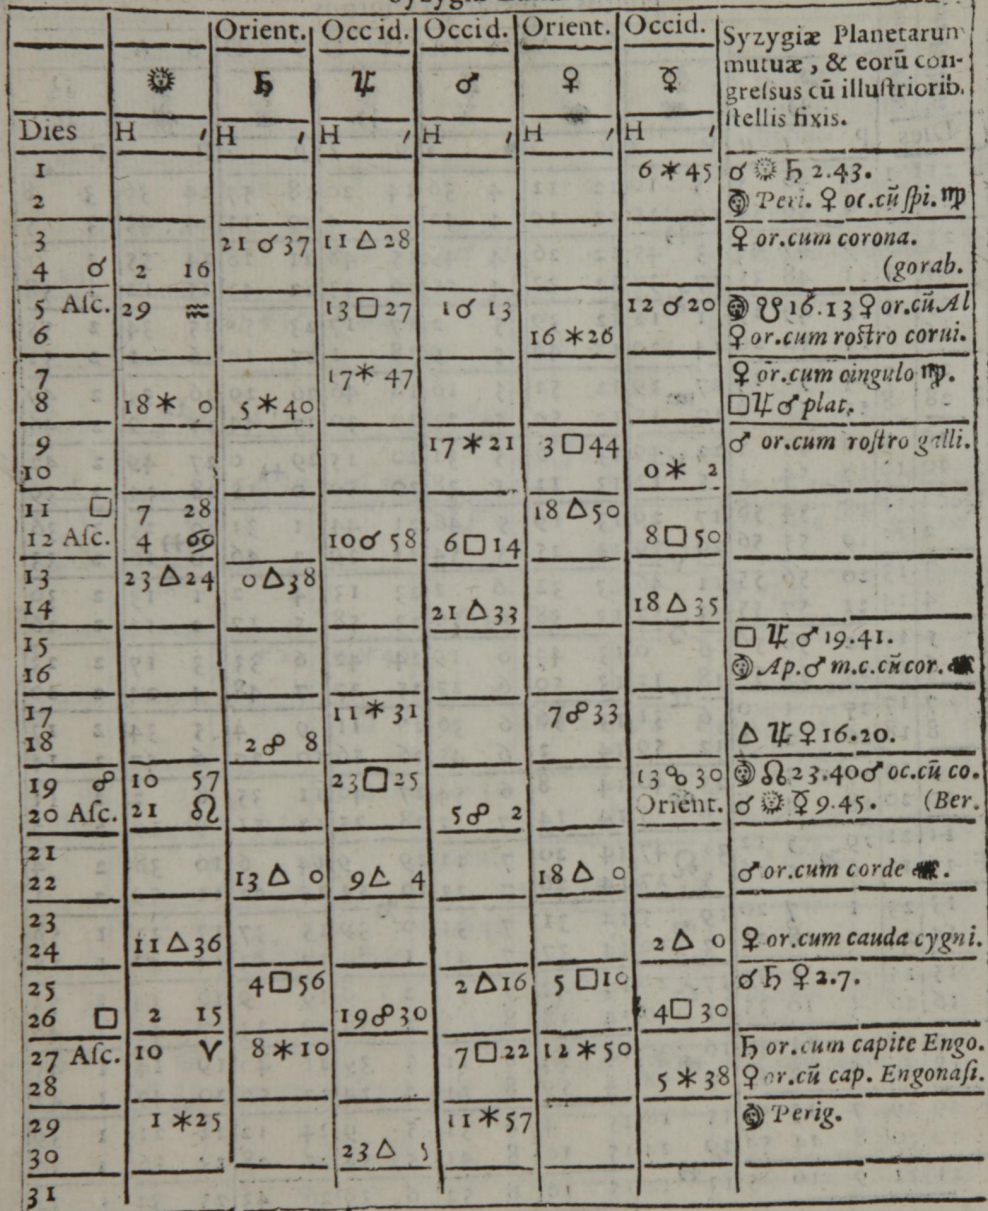 Orient. Occid. Occid. Orient. Occid. Syzygiæ Planetarum
☉ ♄ ♃ ♂ ♀ ☿ mutuæ, & eorū con-
greſsus cū illuſtriorib.
Dies H ′ H ′ H ′ H ′ H ′ H ′ ſtellis fixis.
1 6 ⚹ 45 ☌ ☉ ♄ 2.43.
2 ☽ Peri. ♀ oc.cū ſpi. ♍
3 21 ☌ 37 11 △ 28 ♀ or.cum corona.
4 ☌ 2 16 (gorab.
5 Aſc. 29 ♒ 13 □ 27 1 ☌ 13 12 ☌ 20 ☽ ☋ 16.13 ♀ or.cū Al
6 16 ⚹ 26 ♀ or.cum roſtro corui.
7 17 ⚹ 47 ♀ or.cum cingulo ♍.
8 18 ⚹ 0 5 ⚹ 40 □ ♃ ♂ plat.
9 17 ⚹ 21 3 □ 44 ♂ or.cum roſtro galli.
10 0 ⚹ 2
11 □ 7 28 18 △ 50
12 Aſc. 4 ♋ 10 ☌ 58 6 □ 14 8 □ 50
13 23 △ 24 0 △ 38
14 21 △ 33 18 △ 35
15 □ ♃ ♂ 19.41.
16 ☽ Ap. ♂ m.c.cū cor.
17 11 ⚹ 31 7 ☍ 33
18 2 ☍ 8 △ ♃ ♀ 16.20.
19 ☍ 10 57 23 □ 25 13 ☍ 30 ☽ ☊ 23.40 ♂ oc.cū co.
20 Aſc. 21 ♌ 5 ☍ 2 Orient. ☌ ☉ ☿ 9.45. (Ber.
21
22 13 △ 0 9 △ 4 18 △ 0 ♂ or.cum corde
23
24 11 △ 36 2 △ 0 ♀ or.cum cauda cygni.
25 4 □ 56 2 △ 16 5 □ 10 ☌ ♄ ♀ 2.7.
26 □ 2 15 19 ☍ 30 4 □ 30
27 Aſc. 10 ♈ 8 ⚹ 10 7 □ 22 12 ⚹ 50 ♄ or.cum capite Engo.
28 5 ⚹ 38 ♀ or.cū cap. Engonaſi.
29 1 ⚹ 25 11 ⚹ 57 ☽ Perig.
30 23 △ 5
31